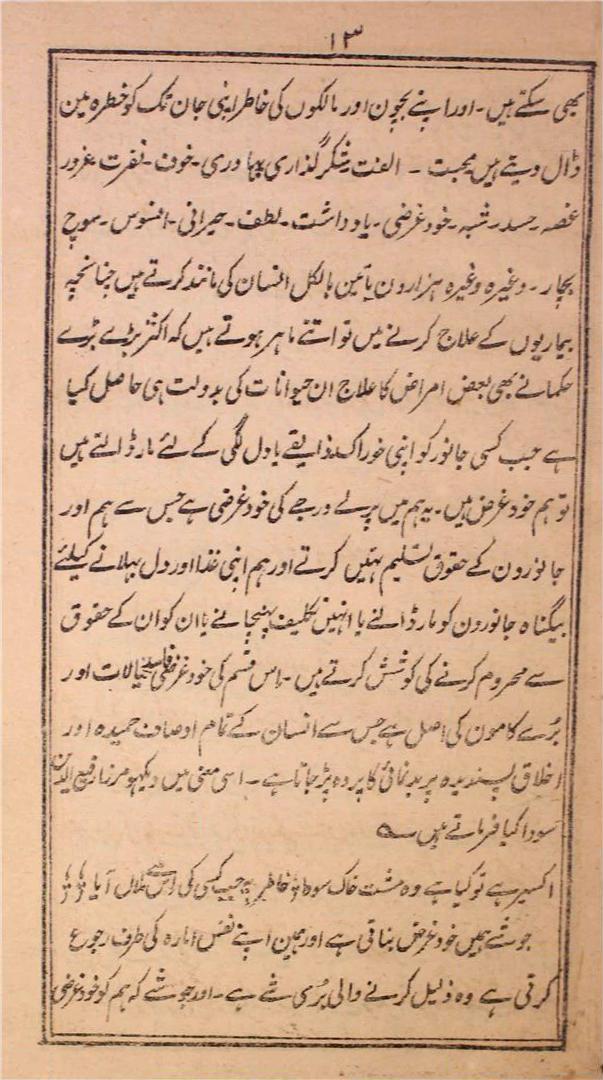 ۱۳
بھی سکتے ہیں۔ اور اپنے بچون اور مالکوں کی خاطر اپنی جان تک کو خطرہ مین
ڈال دیتے ہیں محبت ۔ الفت شکر گذاری بہادری ۔ خوف ۔ نفرت غرور
غصہ ۔ حسد ۔ شبہ ۔ خود غرضی ۔ یاد داشت ۔ لطف ۔ حیرانی ۔ افسوس ۔ سوچ
بچار ۔ وغیرہ وغیرہ ہزارون باتین بالکل انسان کی مانند کرتے ہیں چنانچہ
بیماریوں کے علاج کرنے میں تو اتنے ماہر ہوتے ہیں کہ اکثر بڑے بڑے
حکما نے بھی بعض امراض کا علاج ان حیوانات کی بدولت ہی حاصل کیا
ہے جب کسی جانور کو اپنی خوراک ذایقے یا دل لگی کے لئے مار ڈالتے ہیں
تو ہم خود غرض ہیں۔ یہ ہم میں پرلے درجے کی خود غرضی ہے جس سے ہم اور
جانورون کے حقوق تسلیم نہیں کرتے اور ہم اپنی غذا اور دل بہلانے کیلئے
بیگناہ جانورون کو مار ڈالنے یا انہیں تکلیف پہنچانے یا ان کو ان کے حقوق
سے محروم کرنے کی کوشش کرتے ہیں ۔ اس قسم کی خود غرضی فاسد خیالات اور
بُرے کامون کی اصل ہے جس سے انسان کے تمام اوصاف حمیدہ اور
اخلاق پسندیدہ پر بدنمائی کا پردہ پڑ جاتا ہے ۔ اسی معنی میں دیکھو مرزا رفیع الدین
سودا کیا فرماتے ہیں
اکسیر ہے تو کیا ہے وہ مشت خاک سودا خاطر پہ جب کسی کی اس سے ملال آیا
جو شے ہمیں خود غرض بناتی ہے اور ہمین اپنے نفس امارہ کی طرف رجوع
کرتی ہے وہ ذلیل کرنے والی بُری شے ہے ۔ اور جو شے کہ ہم کو خود غرضی